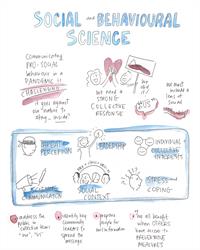 SOCIAL and BEHAVIOURAL
SCIENCE
Communicating
PRO-SOCIAL
behaviour in a
PANDEMIC is
CHALLENGING
it goes against
our "nature" to
stay... inside
WE NEED A
STRONG
COLLECTIVE
RESPONSE
we did
it!
WE must include
a lens of
social
THREAT
PERCEPTION
LEADERSHIP
INDIVIDUAL
COLLECTIVE
INTERESTS
SCIENCE
COMMUNICATION
SOCIAL
CONTEXT
STRESS and
COPING
address the
public in
collective terms
"our", "us"
identify key
community
leaders to
spread the
message
prepare
people for
misinformation
we all benefit
when OTHERS
have access to
PREVENTATIVE
MEASURES